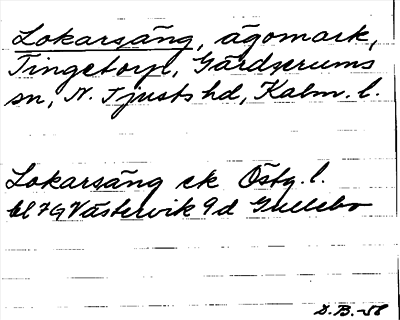 Lokarsäng, ägomark,
Tingetorp, Gärdserums
sn, N. Tjusts hd, Kalm. l.
Lokarsäng ek Östg. l.
bl 7G Västervik 9d Gullebo
D.B.-58